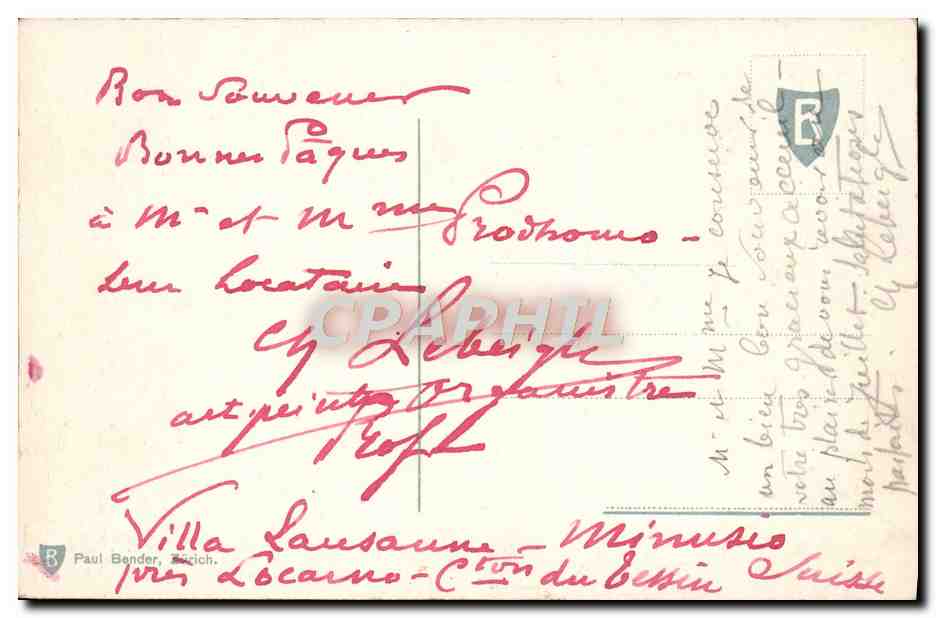 Bon Souvenir
Bonnes Pâques
à Mr et Mme Prodhomo -
leur Locataire
Ch Lebeigle
art peintre organiste
Prof
Villa Lausanne - Minusio
près Locarno - Cton du Tessin Suisse
Mr et Mme Je conserve
un bien bon souvenir de
votre très gracieux accueil -
au plaisir de vous revoir au
mois de Juillet - Salutations
parfaites. Ch Lebeigle
R
R
Paul Bender, Zürich.
CPAPHIL